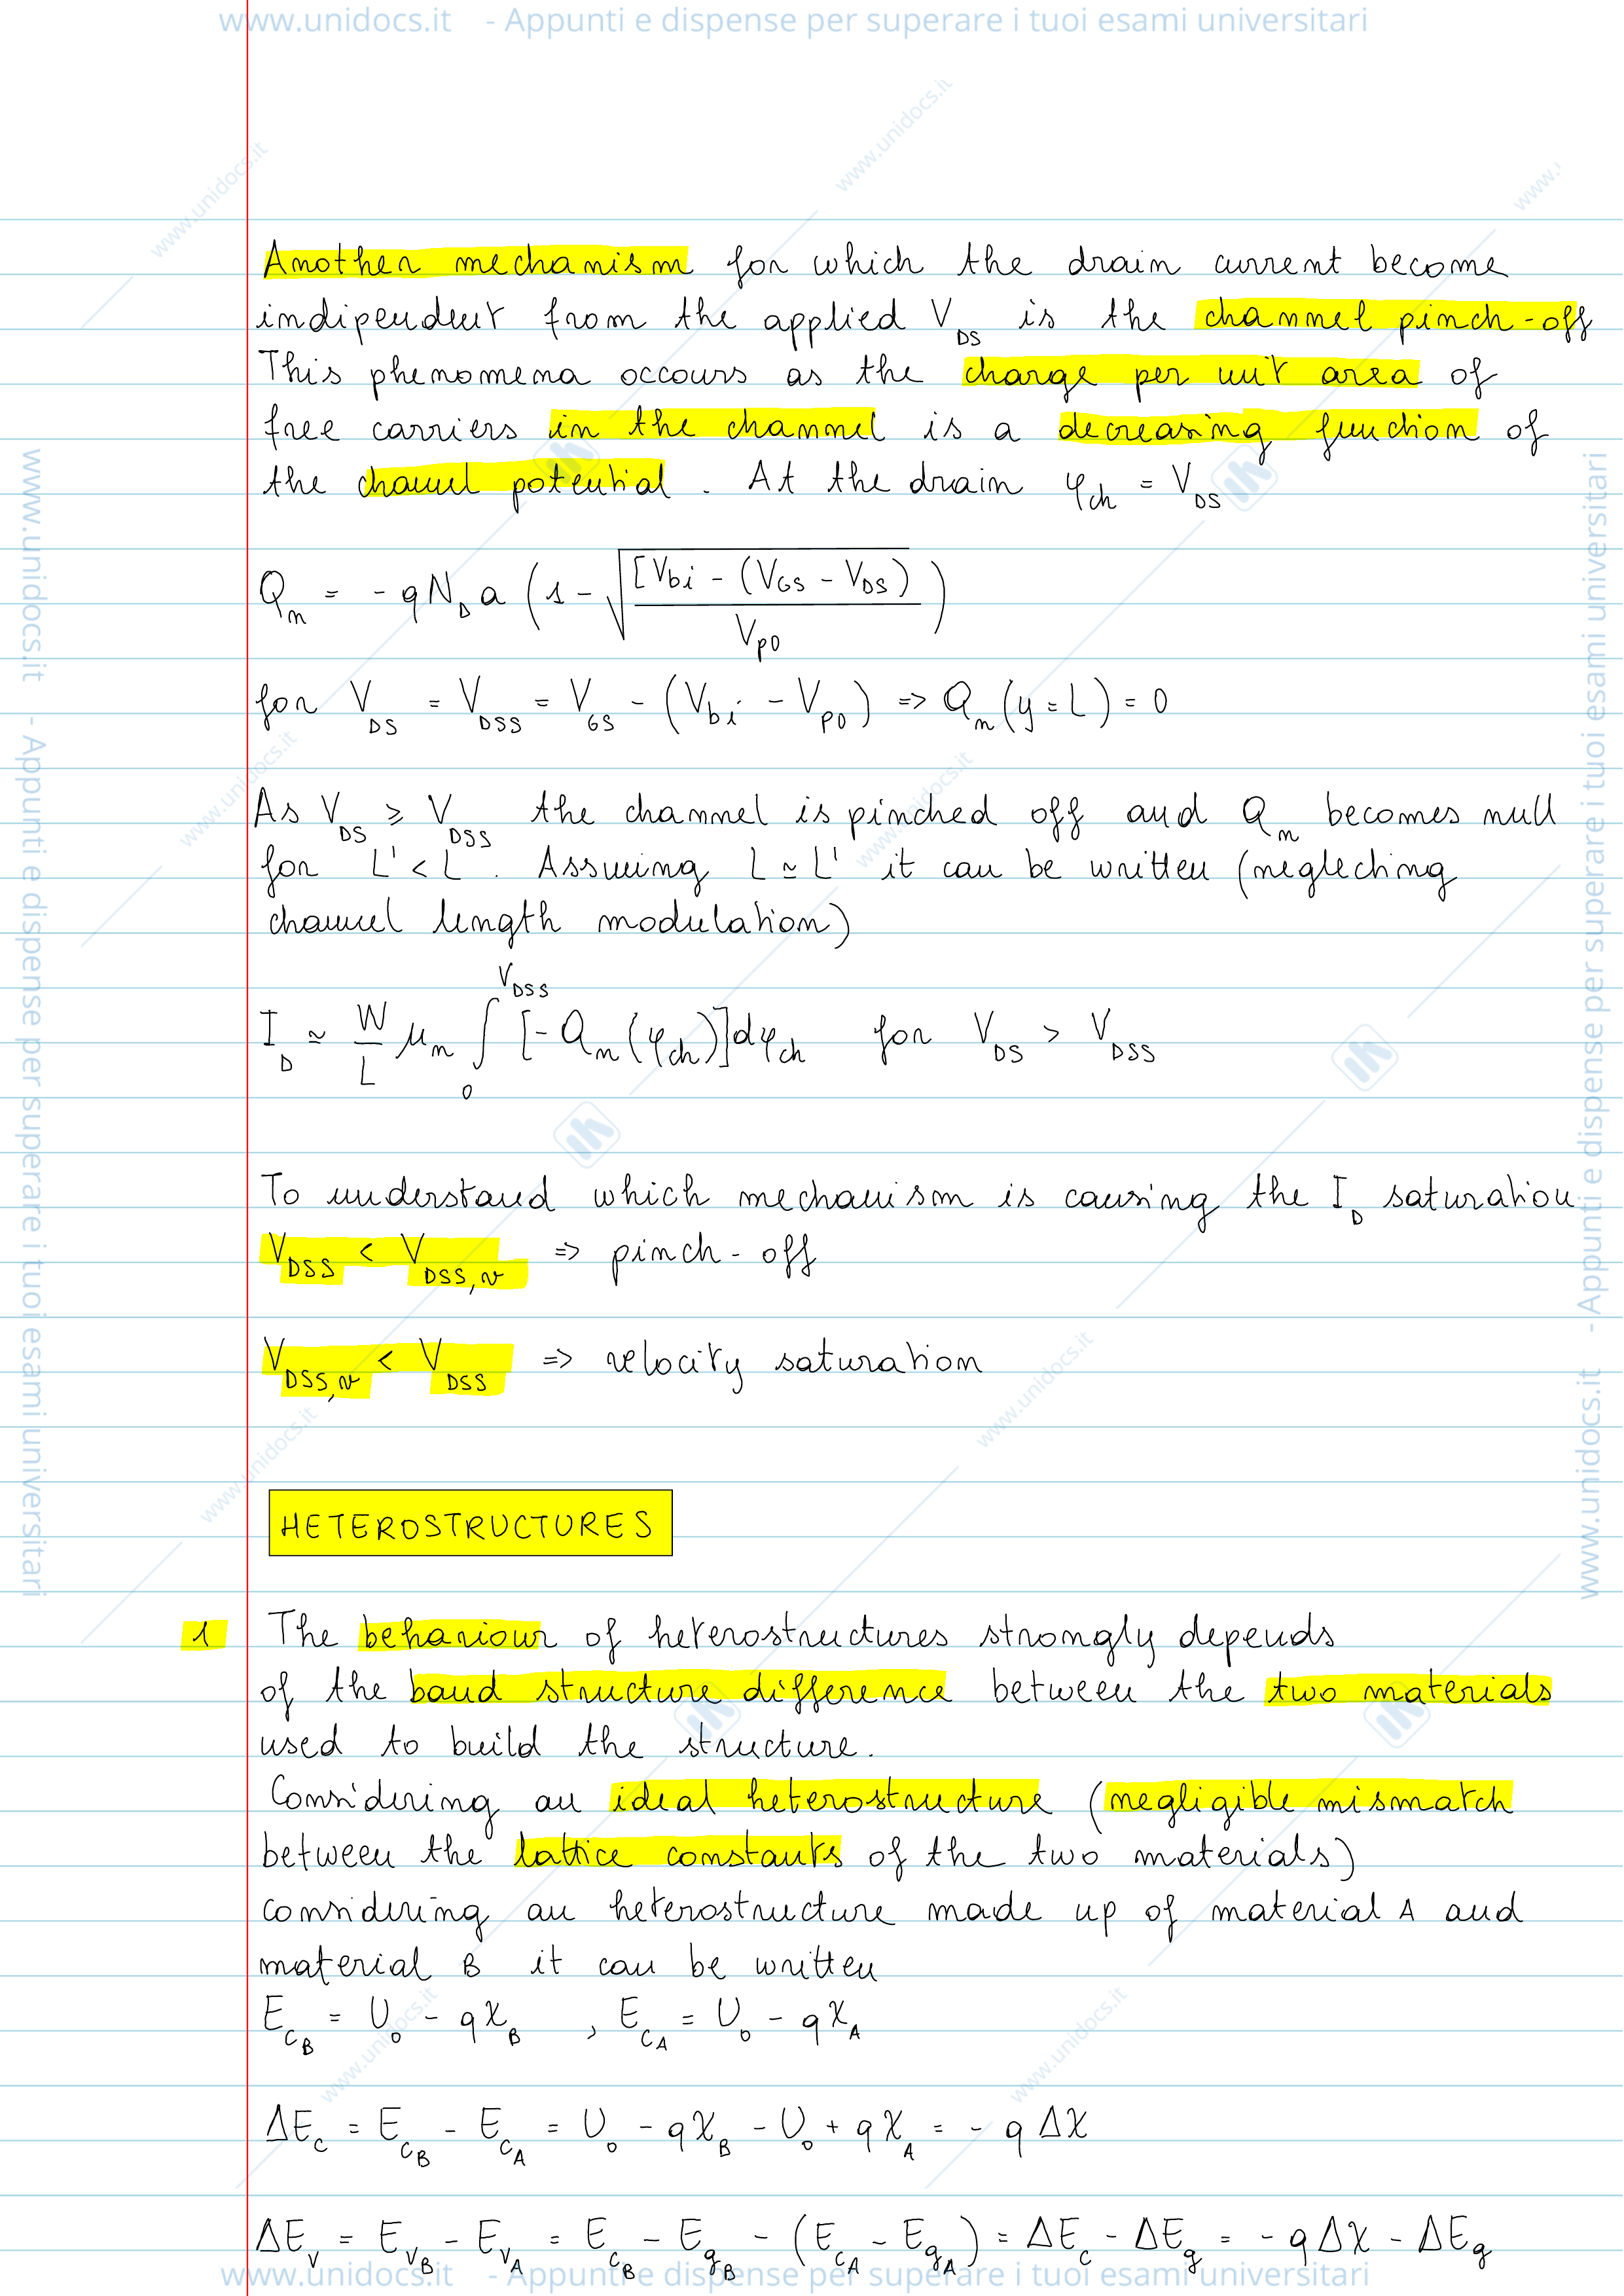 www.unidocs.it - Appunti e dispense per superare i tuoi esami universitari
Another mechanism for which the drain current become
indipendent from the applied V_DS is the channel pinch-off
This phenomena occours as the charge per unit area of
free carriers in the channel is a decreasing function of
the channel potential. At the drain φ_ch = V_DS
Q_n = -q N_D a (1 - √([V_bi - (V_GS - V_DS)] / V_p0))
for V_DS = V_DSS = V_GS - (V_bi - V_p0) => Q_n(y=L) = 0
As V_DS ≥ V_DSS the channel is pinched off and Q_n becomes null
for L' < L. Assuming L ≃ L' it can be written (neglecting
channel length modulation)
I_D ≃ W/L μ_n ∫_0^V_DSS [-Q_n(φ_ch)] dφ_ch for V_DS > V_DSS
To understand which mechanism is causing the I_D saturation
V_DSS < V_DSS,v => pinch-off
V_DSS,v < V_DSS => velocity saturation
HETEROSTRUCTURES
1 The behaviour of heterostructures strongly depends
of the band structure difference between the two materials
used to build the structure.
Considering an ideal heterostructure (negligible mismatch
between the lattice constants of the two materials)
considering an heterostructure made up of material A and
material B it can be written
E_CB = U_0 - qχ_B , E_CA = U_0 - qχ_A
ΔE_C = E_CB - E_CA = U_0 - qχ_B - U_0 + qχ_A = - qΔχ
ΔE_V = E_VB - E_VA = E_CB - E_gB - (E_CA - E_gA) = ΔE_C - ΔE_g = - qΔχ - ΔE_g
www.unidocs.it - Appunti e dispense per superare i tuoi esami universitari
www.unidocs.it - Appunti e dispense per superare i tuoi esami universitari
www.unidocs.it - Appunti e dispense per superare i tuoi esami universitari